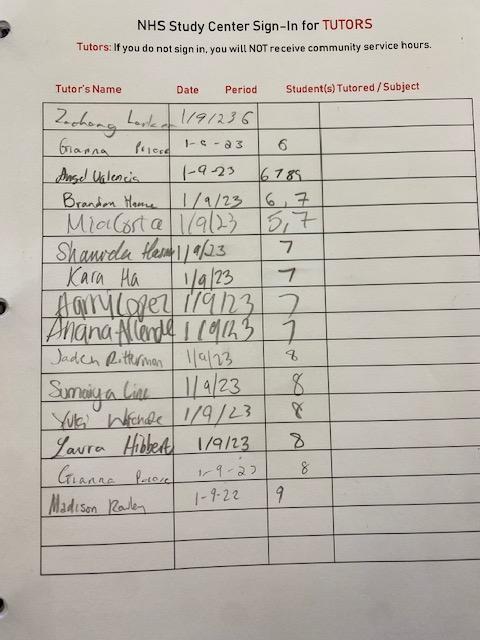 NHS Study Center Sign-In for TUTORS
Tutors: If you do not sign in, you will NOT receive community service hours.
Tutor's Name Date Period Student(s) Tutored / Subject
Zachary 1/9/23 6
Gianna 1-9-23 6
Angel Valencia 1-9-23 6789
Brandon 1/9/23 6,7
Mia Costa 1/9/23 5,7
1/9/23 7
Kara Ha 1/9/23 7
Harry Lopez 1/9/23 7
Allende 1/9/23 7
Jaden Ritterman 1/9/23 8
Sumaiya 1/9/23 8
Yuki 1/9/23 8
Laura Hibbert 1/9/23 8
Gianna 1-9-23 8
Madison 1-9-22 9